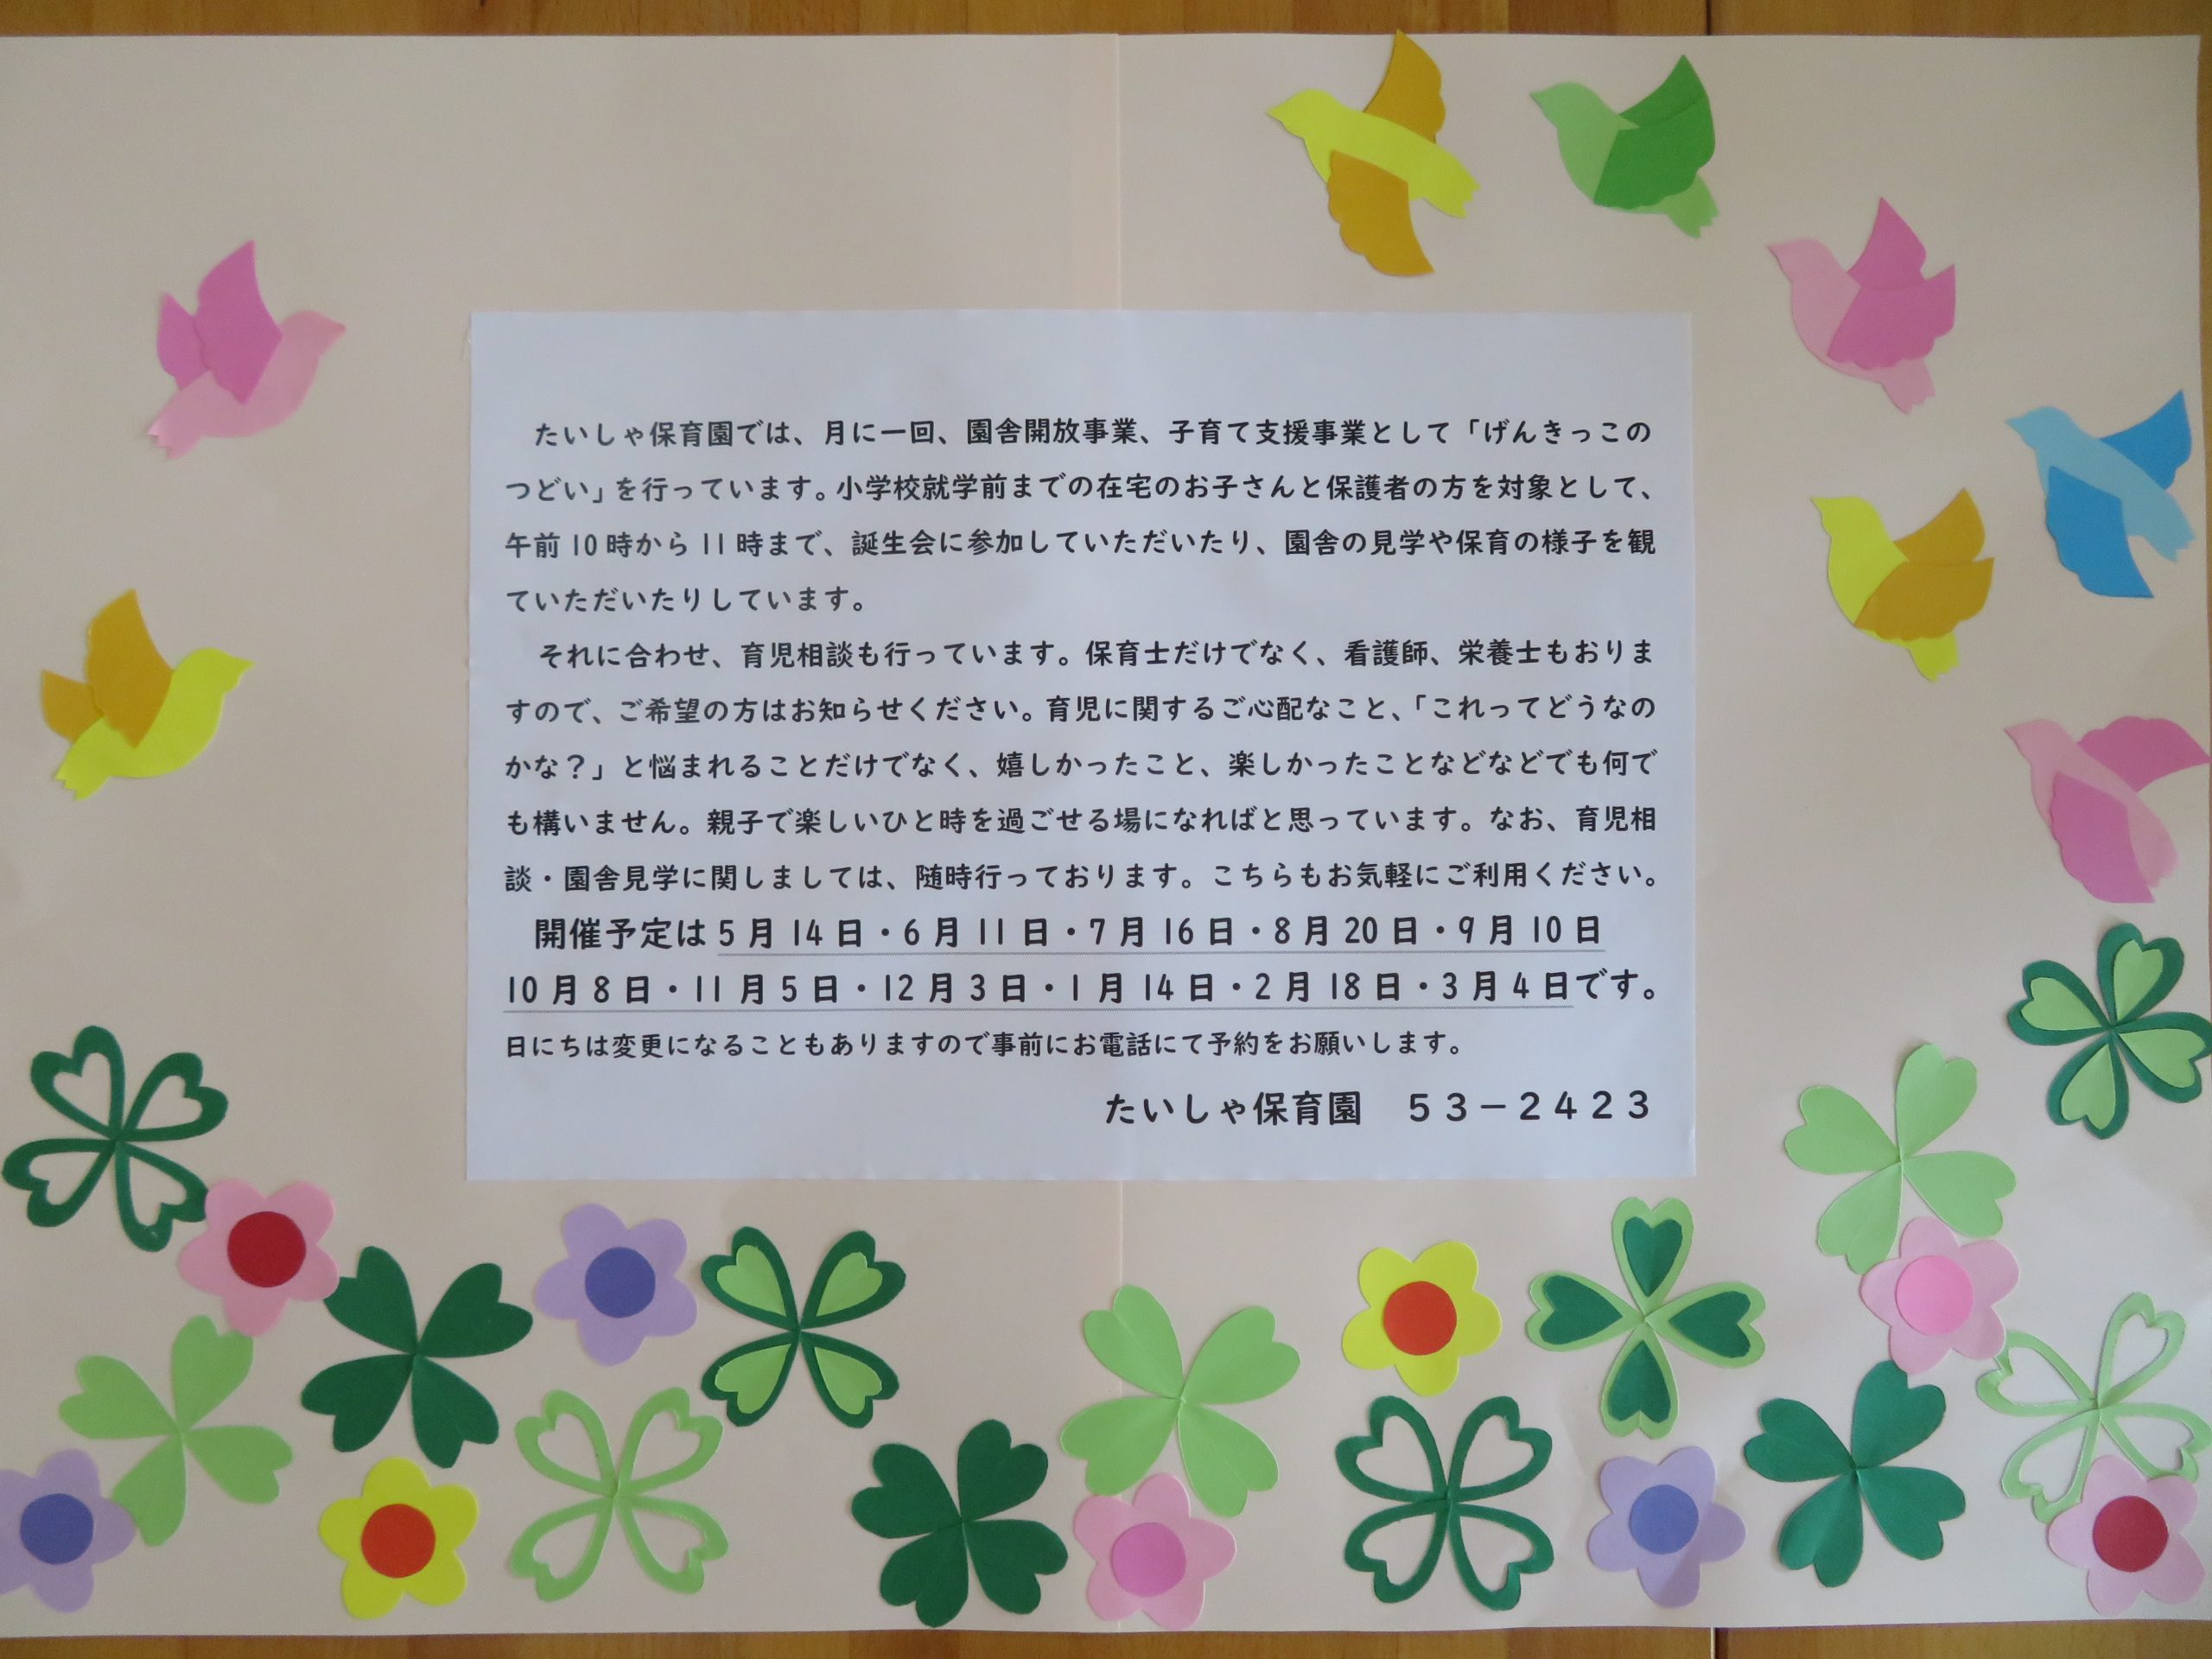 たいしゃ保育園では、月に一回、園舎開放事業、子育て支援事業として「げんきっこの
つどい」を行っています。小学校就学前までの在宅のお子さんと保護者の方を対象として、
午前10時から11時まで、誕生会に参加していただいたり、園舎の見学や保育の様子を観
ていただいたりしています。
それに合わせ、育児相談も行っています。保育士だけでなく、看護師、栄養士もおりま
すので、ご希望の方はお知らせください。育児に関するご心配なこと、「これってどうなの
かな？」と悩まれることだけでなく、嬉しかったこと、楽しかったことなどなどでも何で
も構いません。親子で楽しいひと時を過ごせる場になればと思っています。なお、育児相
談・園舎見学に関しましては、随時行っております。こちらもお気軽にご利用ください。
開催予定は5月14日・6月11日・7月16日・8月20日・9月10日
10月8日・11月5日・12月3日・1月14日・2月18日・3月4日です。
日にちは変更になることもありますので事前にお電話にて予約をお願いします。
たいしゃ保育園　５３－２４２３